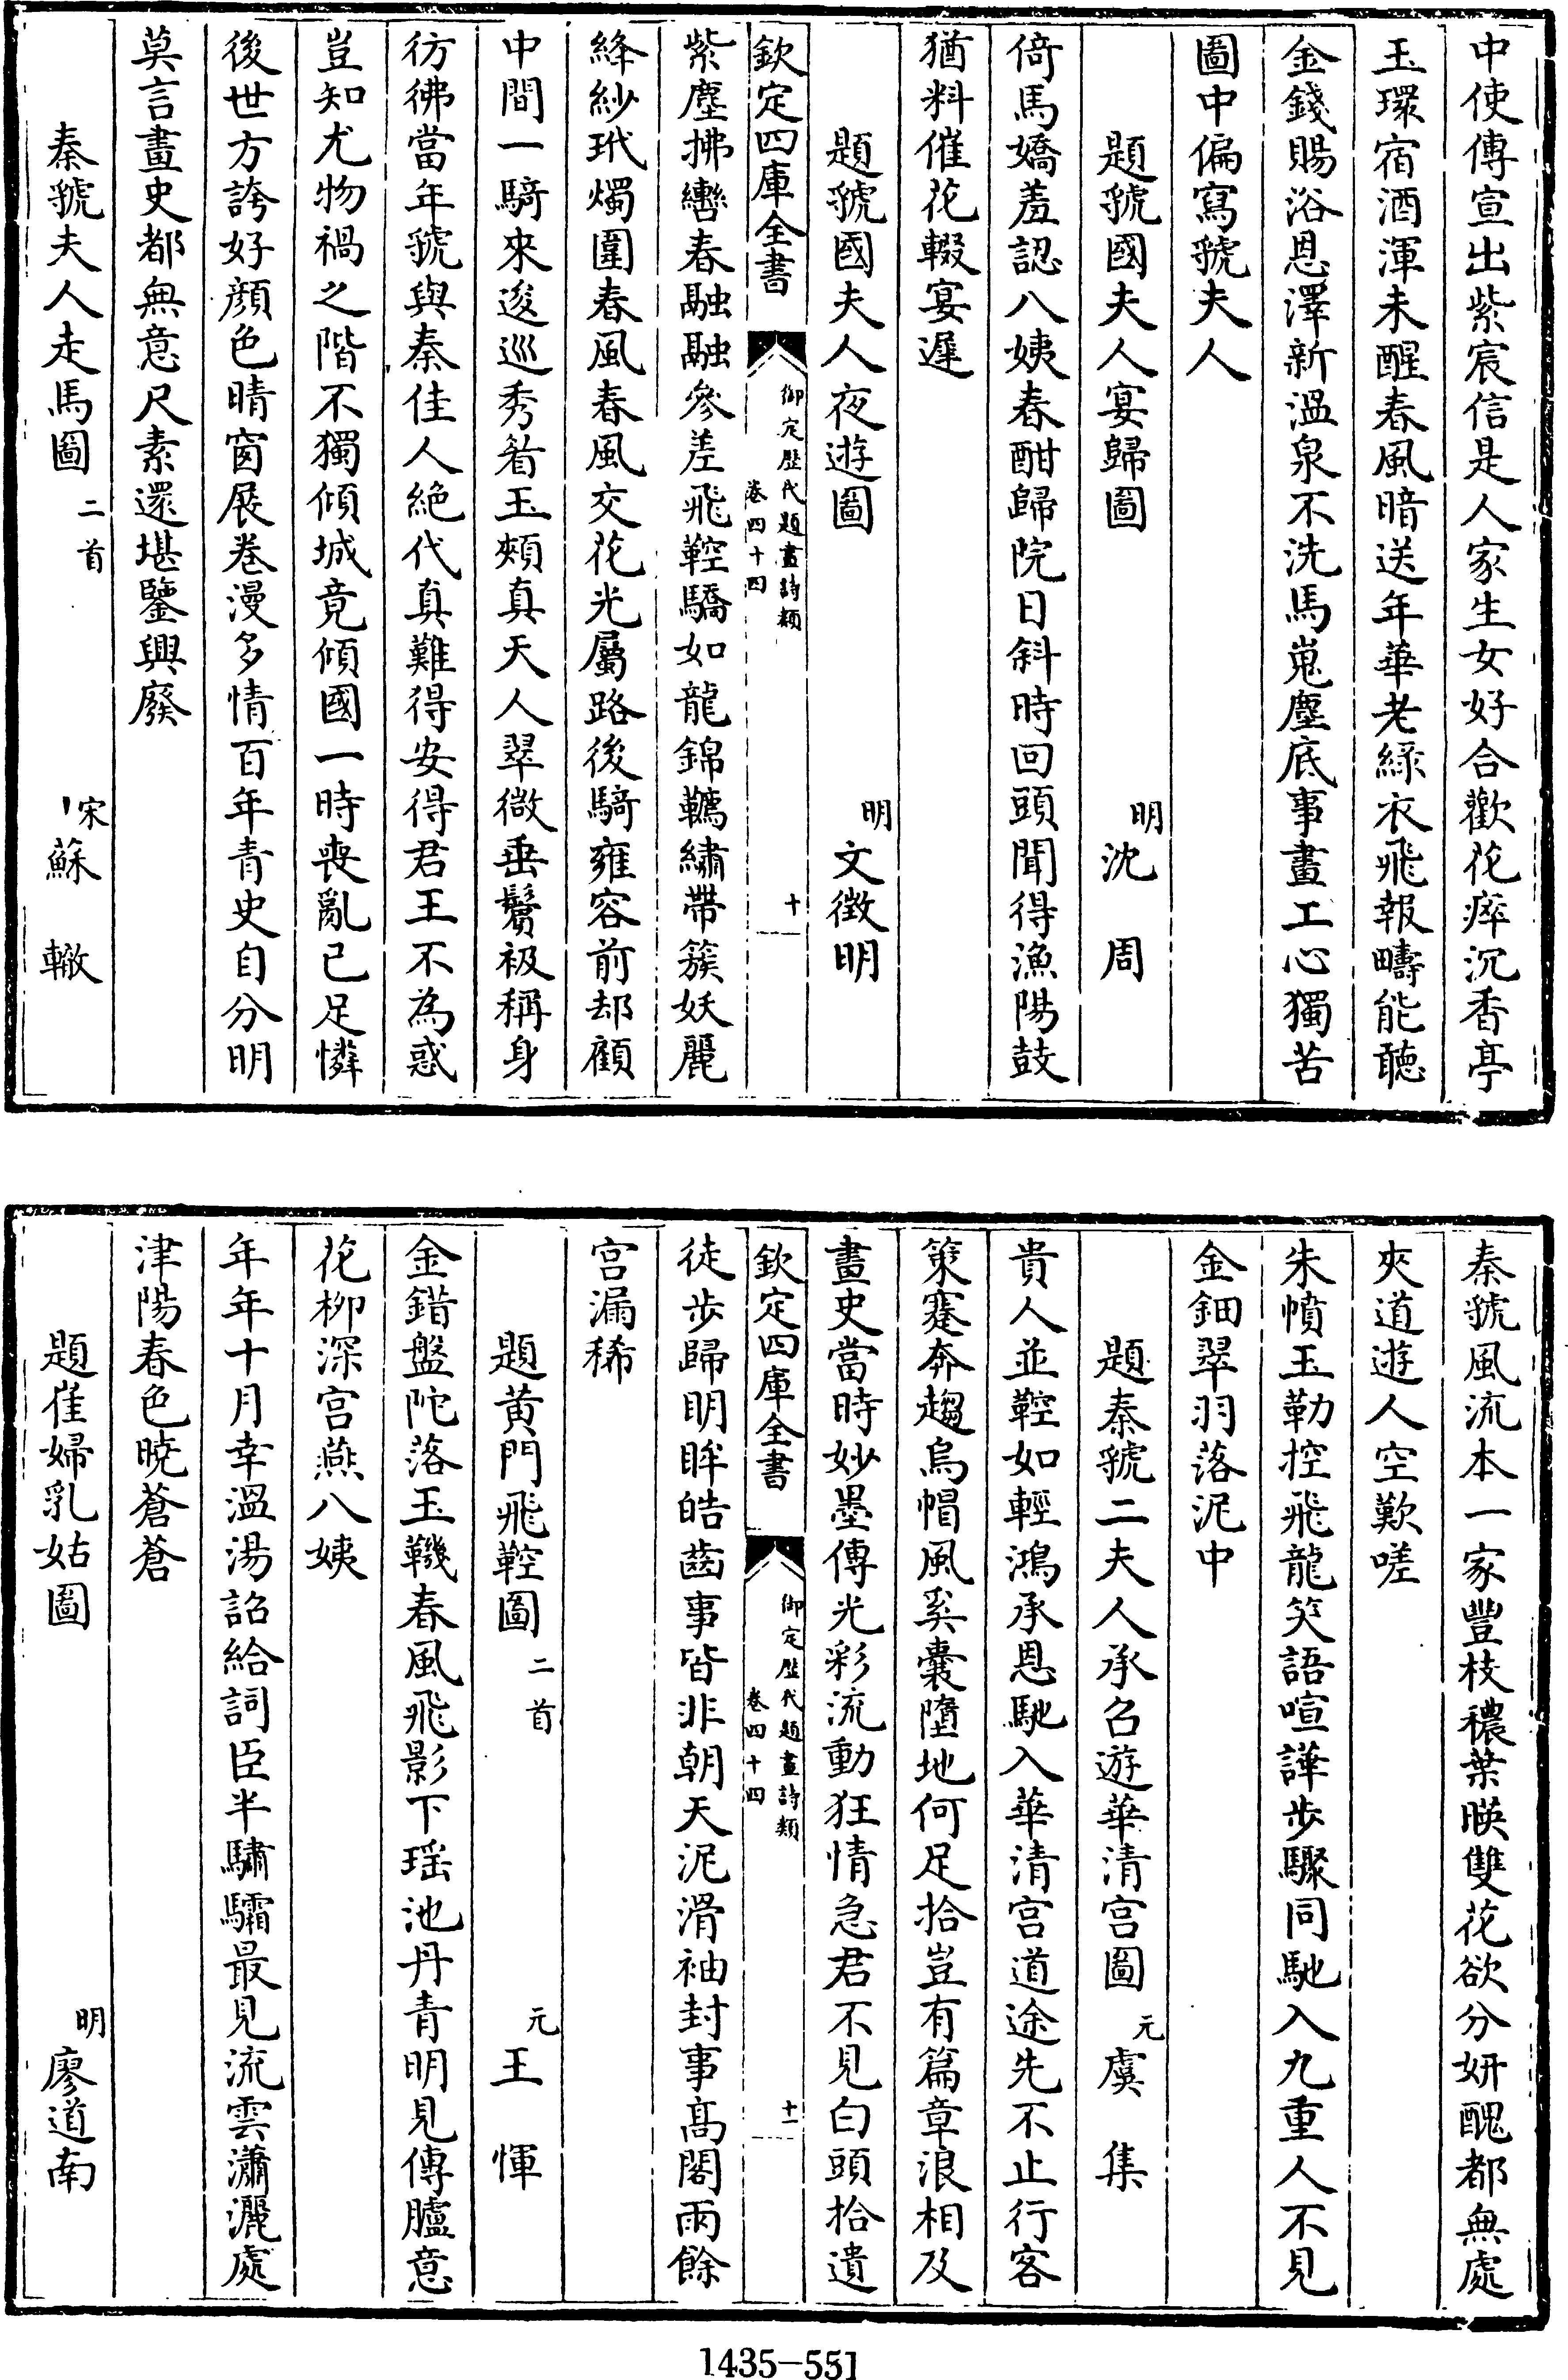 中使傳宣出紫宸信是人家生女好合歡花瘁沉香亭
玉環宿酒渾未醒春風暗送年華老綠衣飛報疇能聽
金錢賜浴恩澤新溫泉不洗馬嵬塵底事畫工心獨苦
圖中偏寫虢夫人
題虢國夫人宴歸圖 明 沈周
倚馬嬌羞認八姨春酣歸院日斜時回頭聞得漁陽鼓
猶料催花輟宴遲
題虢國夫人夜遊圖 明 文徵明
欽定四庫全書 御定歷代題畫詩類 卷四十四 十
紫塵拂轡春融融參差飛鞚驕如龍錦韉繡帶簇妖麗
絳紗玳燭圍春風春風交花光屬路後騎雍容前却顧
中間一騎來逡巡秀眉玉頰真天人翠微垂鬢衱稱身
彷彿當年虢與秦佳人絕代真難得安得君王不為惑
豈知尤物禍之階不獨傾城竟傾國一時喪亂已足憐
後世方誇好顏色晴窗展卷漫多情百年青史自分明
莫言畫史都無意尺素還堪鑒興廢
秦虢夫人走馬圖 二首 宋 蘇轍
秦虢風流本一家豐枝穠葉暎雙花欲分妍醜都無處
夾道遊人空歎嗟
朱幩玉勒控飛龍笑語喧譁步驟同馳入九重人不見
金鈿翠羽落泥中
題秦虢二夫人承召遊華清宮圖 元 虞集
貴人並鞚如輕鴻承恩馳入華清宮道途先不止行客
策蹇奔趨烏帽風奚囊墮地何足拾豈有篇章浪相及
畫史當時妙墨傳光彩流動狂情急君不見白頭拾遺
欽定四庫全書 御定歷代題畫詩類 卷四十四 十一
徒步歸明眸皓齒事皆非朝天泥滑袖封事髙閣雨餘
宮漏稀
題黃門飛鞚圖 二首 元 王惲
金錯盤陀落玉鞿春風飛影下瑶池丹青明見傳臚意
花柳深宮燕八姨
年年十月幸溫湯詔給詞臣半驌驦最見流雲瀟灑處
津陽春色曉蒼蒼
題崔婦乳姑圖 明 廖道南
1435-551